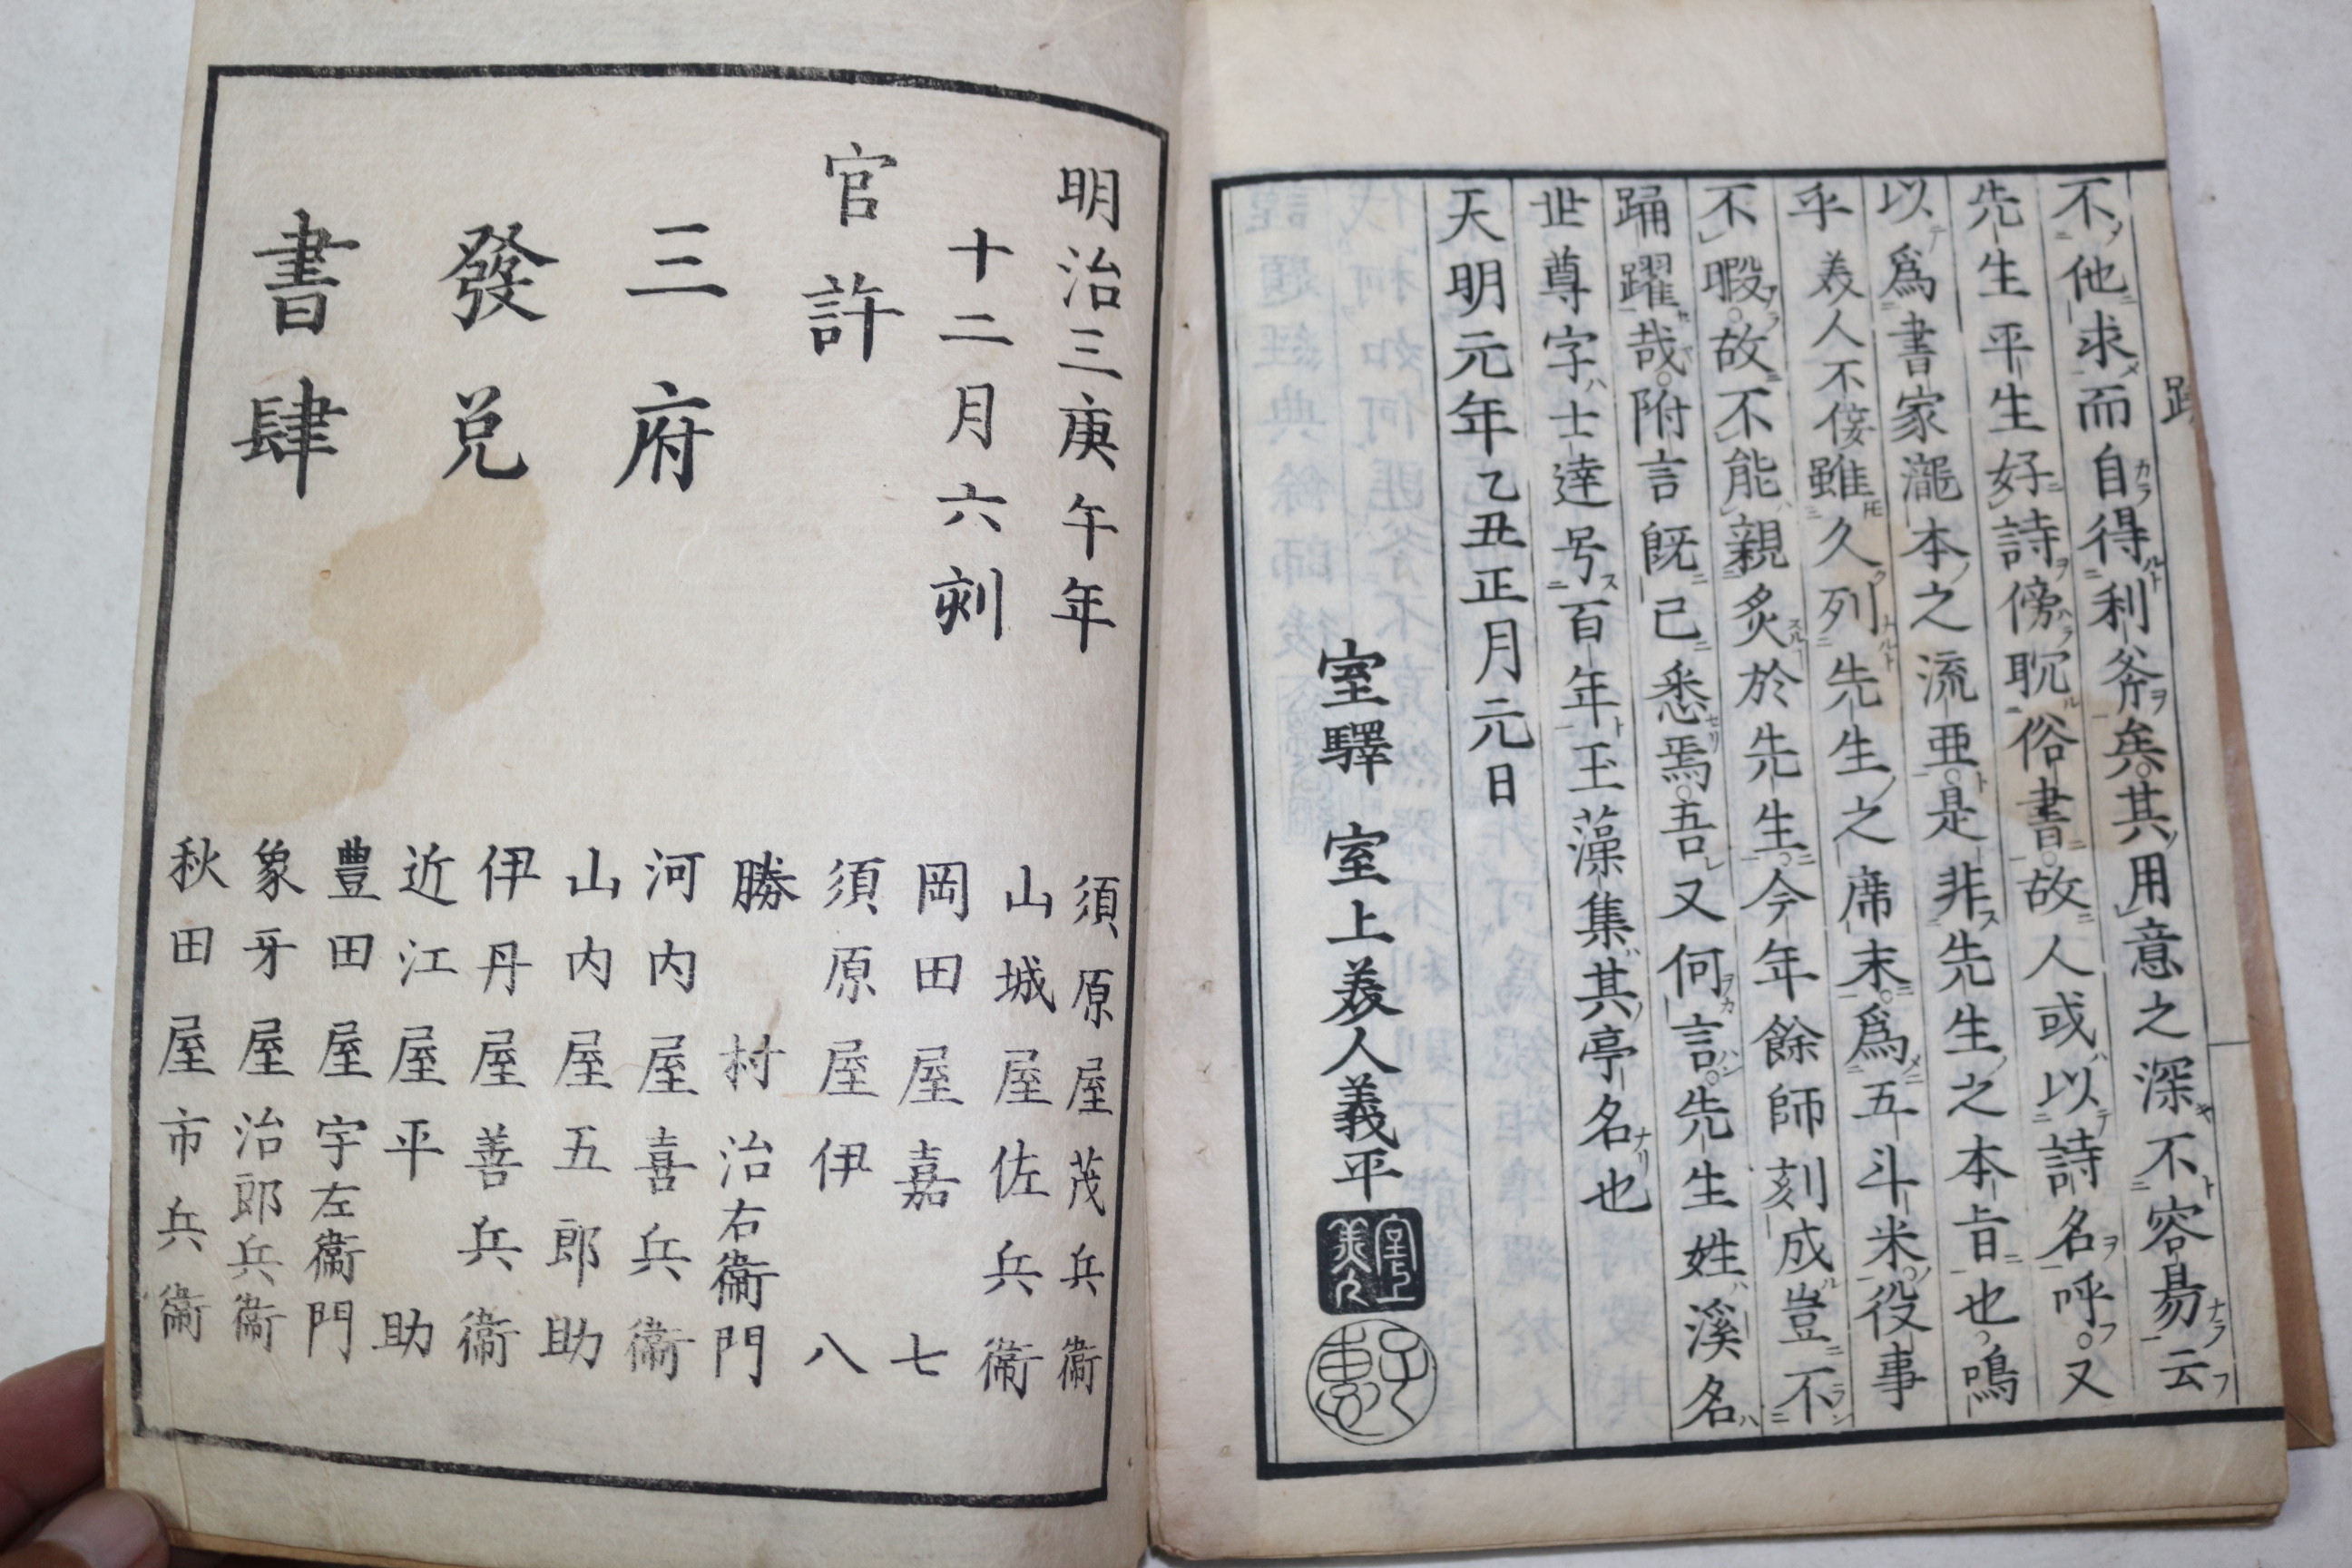 不他求而自得利斧矣其用意之深不容易云
先生平生好詩傍耽俗書故人或以詩名呼又
以爲書家瀧本之流亜是非先生之本旨也鳴
乎美人不佞雖久列先生之席末爲五斗米役事
不暇故不能親炙於先生今年餘師刻成豈不
踊躍哉附言既已悉焉吾又何言先生姓溪名
世尊字士達号百年玉藻集其亭名也
天明元年乙丑正月元日
室驛 室上美人義平
室上美人
明治三庚午年
十二月六刻
官許
三府
發兌
書肆
須原屋茂兵衞
山城屋佐兵衞
岡田屋嘉七
須原屋伊八
勝村治右衞門
河内屋喜兵衞
山内屋五郎助
伊丹屋善兵衞
近江屋平助
豊田屋宇左衞門
象牙屋治郎兵衞
秋田屋市兵衞